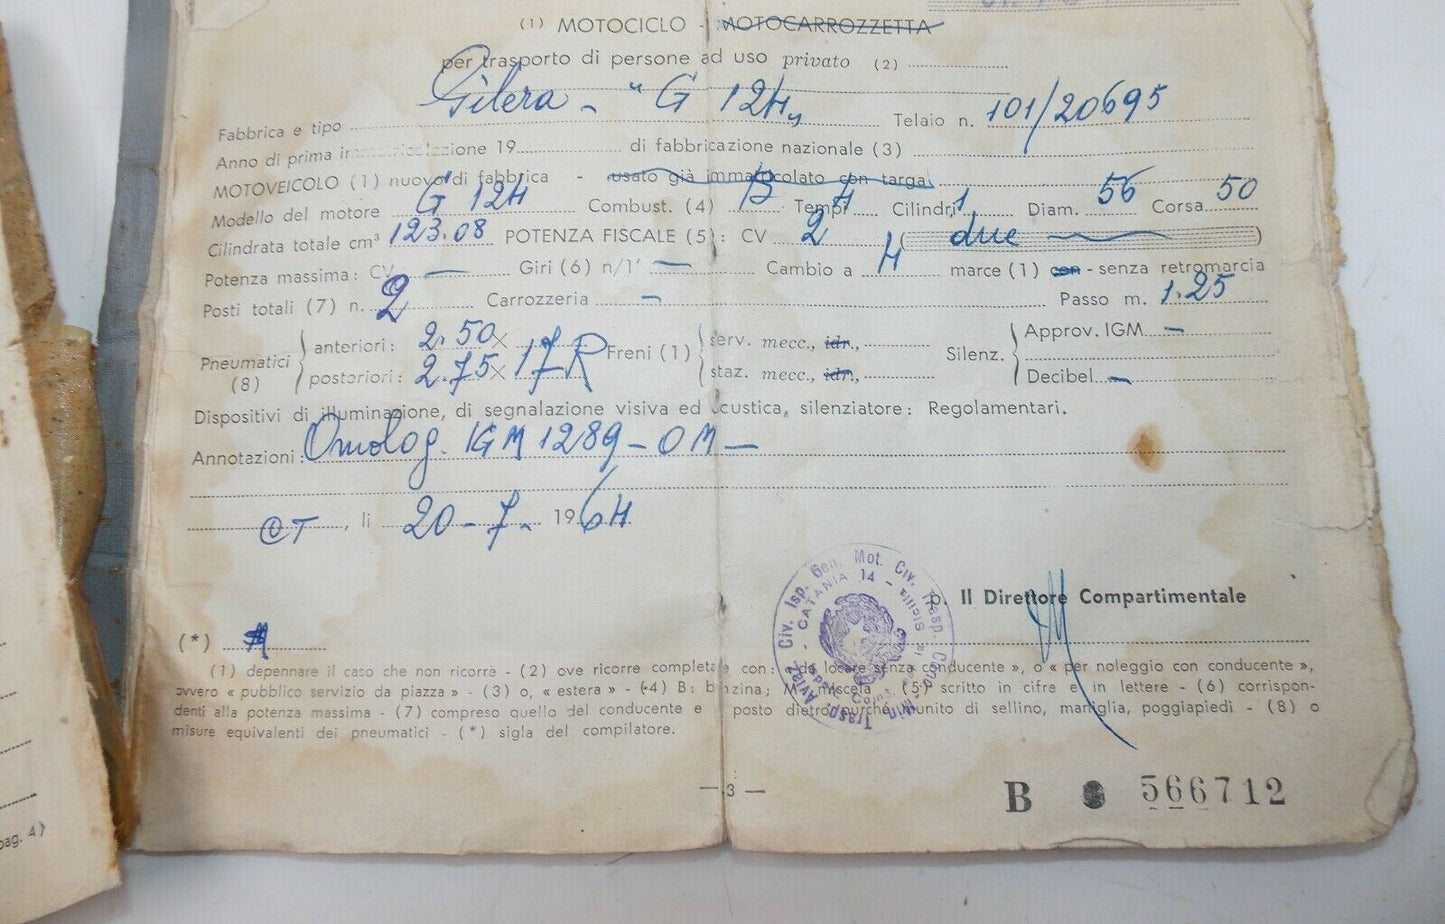 (1) MOTOCICLO - MOTOCARROZZETTA
per trasporto di persone ad uso privato (2)
Fabbrica e tipo Gilera - "G 124" Telaio n. 101/20695
Anno di prima immatricolazione 19 di fabbricazione nazionale (3)
MOTOVEICOLO (1) nuovo di fabbrica - usato già immatricolato con targa
Modello del motore G 124 Combust. (4) B Tempi 4 Cilindri 1 Diam. 56 Corsa 50
Cilindrata totale cm³ 123.08 POTENZA FISCALE (5): CV 2 ( due )
Potenza massima: CV — Giri (6) n/1' — Cambio a 4 marce (1) con - senza retromarcia
Posti totali (7) n. 2 Carrozzeria — Passo m. 1.25
Pneumatici (8) anteriori: 2.50 x 17 R Freni (1) serv. mecc., idr., Silenz. Approv. IGM —
posteriori: 2.75 x staz. mecc., idr., Decibel —
Dispositivi di illuminazione, di segnalazione visiva ed acustica, silenziatore: Regolamentari.
Annotazioni: Omolog. IGM 1289 - OM —
CT, lì 20-7- 1964
p. Il Direttore Compartimentale
(*)
(1) depennare il caso che non ricorre - (2) ove ricorre completare con: « da locare senza conducente », o « per noleggio con conducente »,
ovvero « pubblico servizio da piazza » - (3) o, « estera » - (4) B: benzina; M: miscela - (5) scritto in cifre e in lettere - (6) corrispon-
denti alla potenza massima - (7) compreso quello del conducente e posto dietro purché munito di sellino, maniglia, poggiapiedi - (8) o
misure equivalenti dei pneumatici - (*) sigla del compilatore.
CATANIA 14 - Sicilia
— 3 —
B 566712
pag. 4)